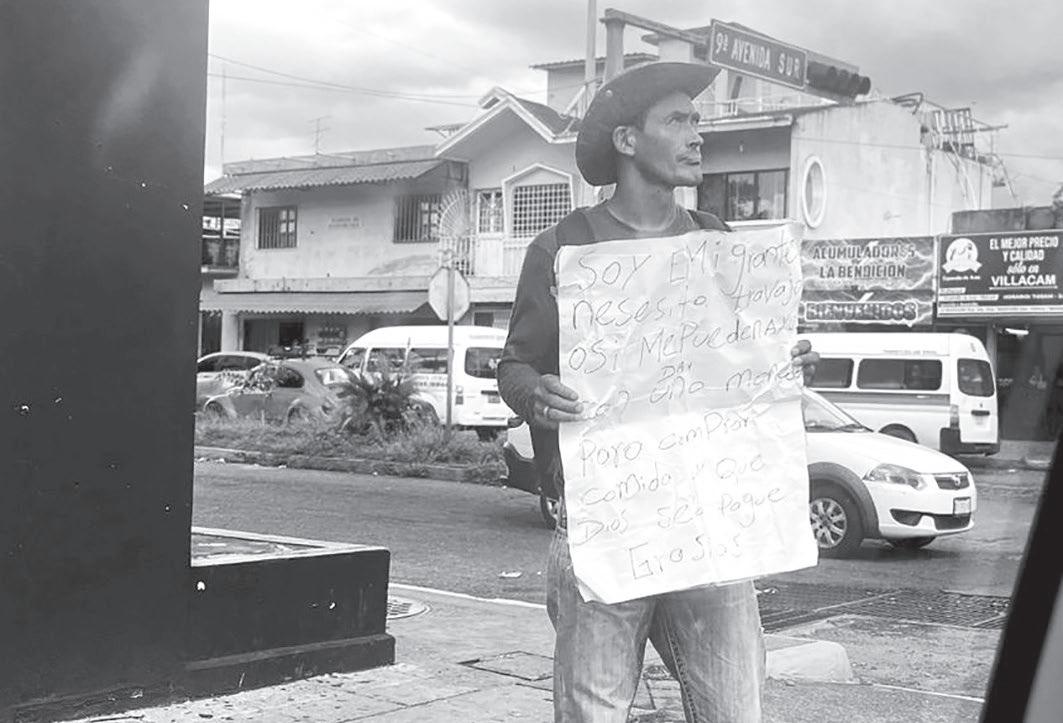 9ª AVENIDA SUR
SOY EMigrante
nesesito travajo
OSi MePueden AYU
DAr
con una moneda
Para compiar
comida y que
Dios se lo Pague
Grasias
ACUMULADORES
LA BENDICION
BIENVENIDOS
EL MEJOR PRECIO
Y CALIDAD
sólo en
VILLACAM